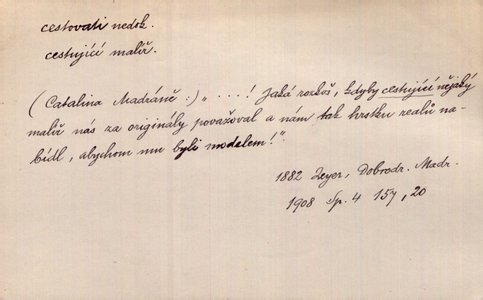 cestovati nedok.
cestující malíř.
(Catalina Madráně:) „ . . . .! Jaká rozkoš, kdyby cestující nějaký
malíř nás za originály považoval a nám tak hrstku realů na-
bídl, abychom mu byli modelem!“.
1882 Zeyer, Dobrodr. Madr.
1908 Sp. 4 157, 20